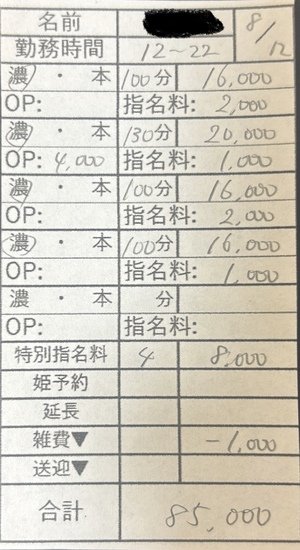 名前 8/12
勤務時間 12～22
濃 ・ 本 100分 16,000
OP: 指名料: 2,000
濃 ・ 本 130分 20,000
OP: 4,000 指名料: 1,000
濃 ・ 本 100分 16,000
OP: 指名料: 2,000
濃 ・ 本 100分 16,000
OP: 指名料: 1,000
濃 ・ 本 分
OP: 指名料:
特別指名料 4 8,000
姫予約
延長
雑費▼ -1,000
送迎▼
合計 85,000